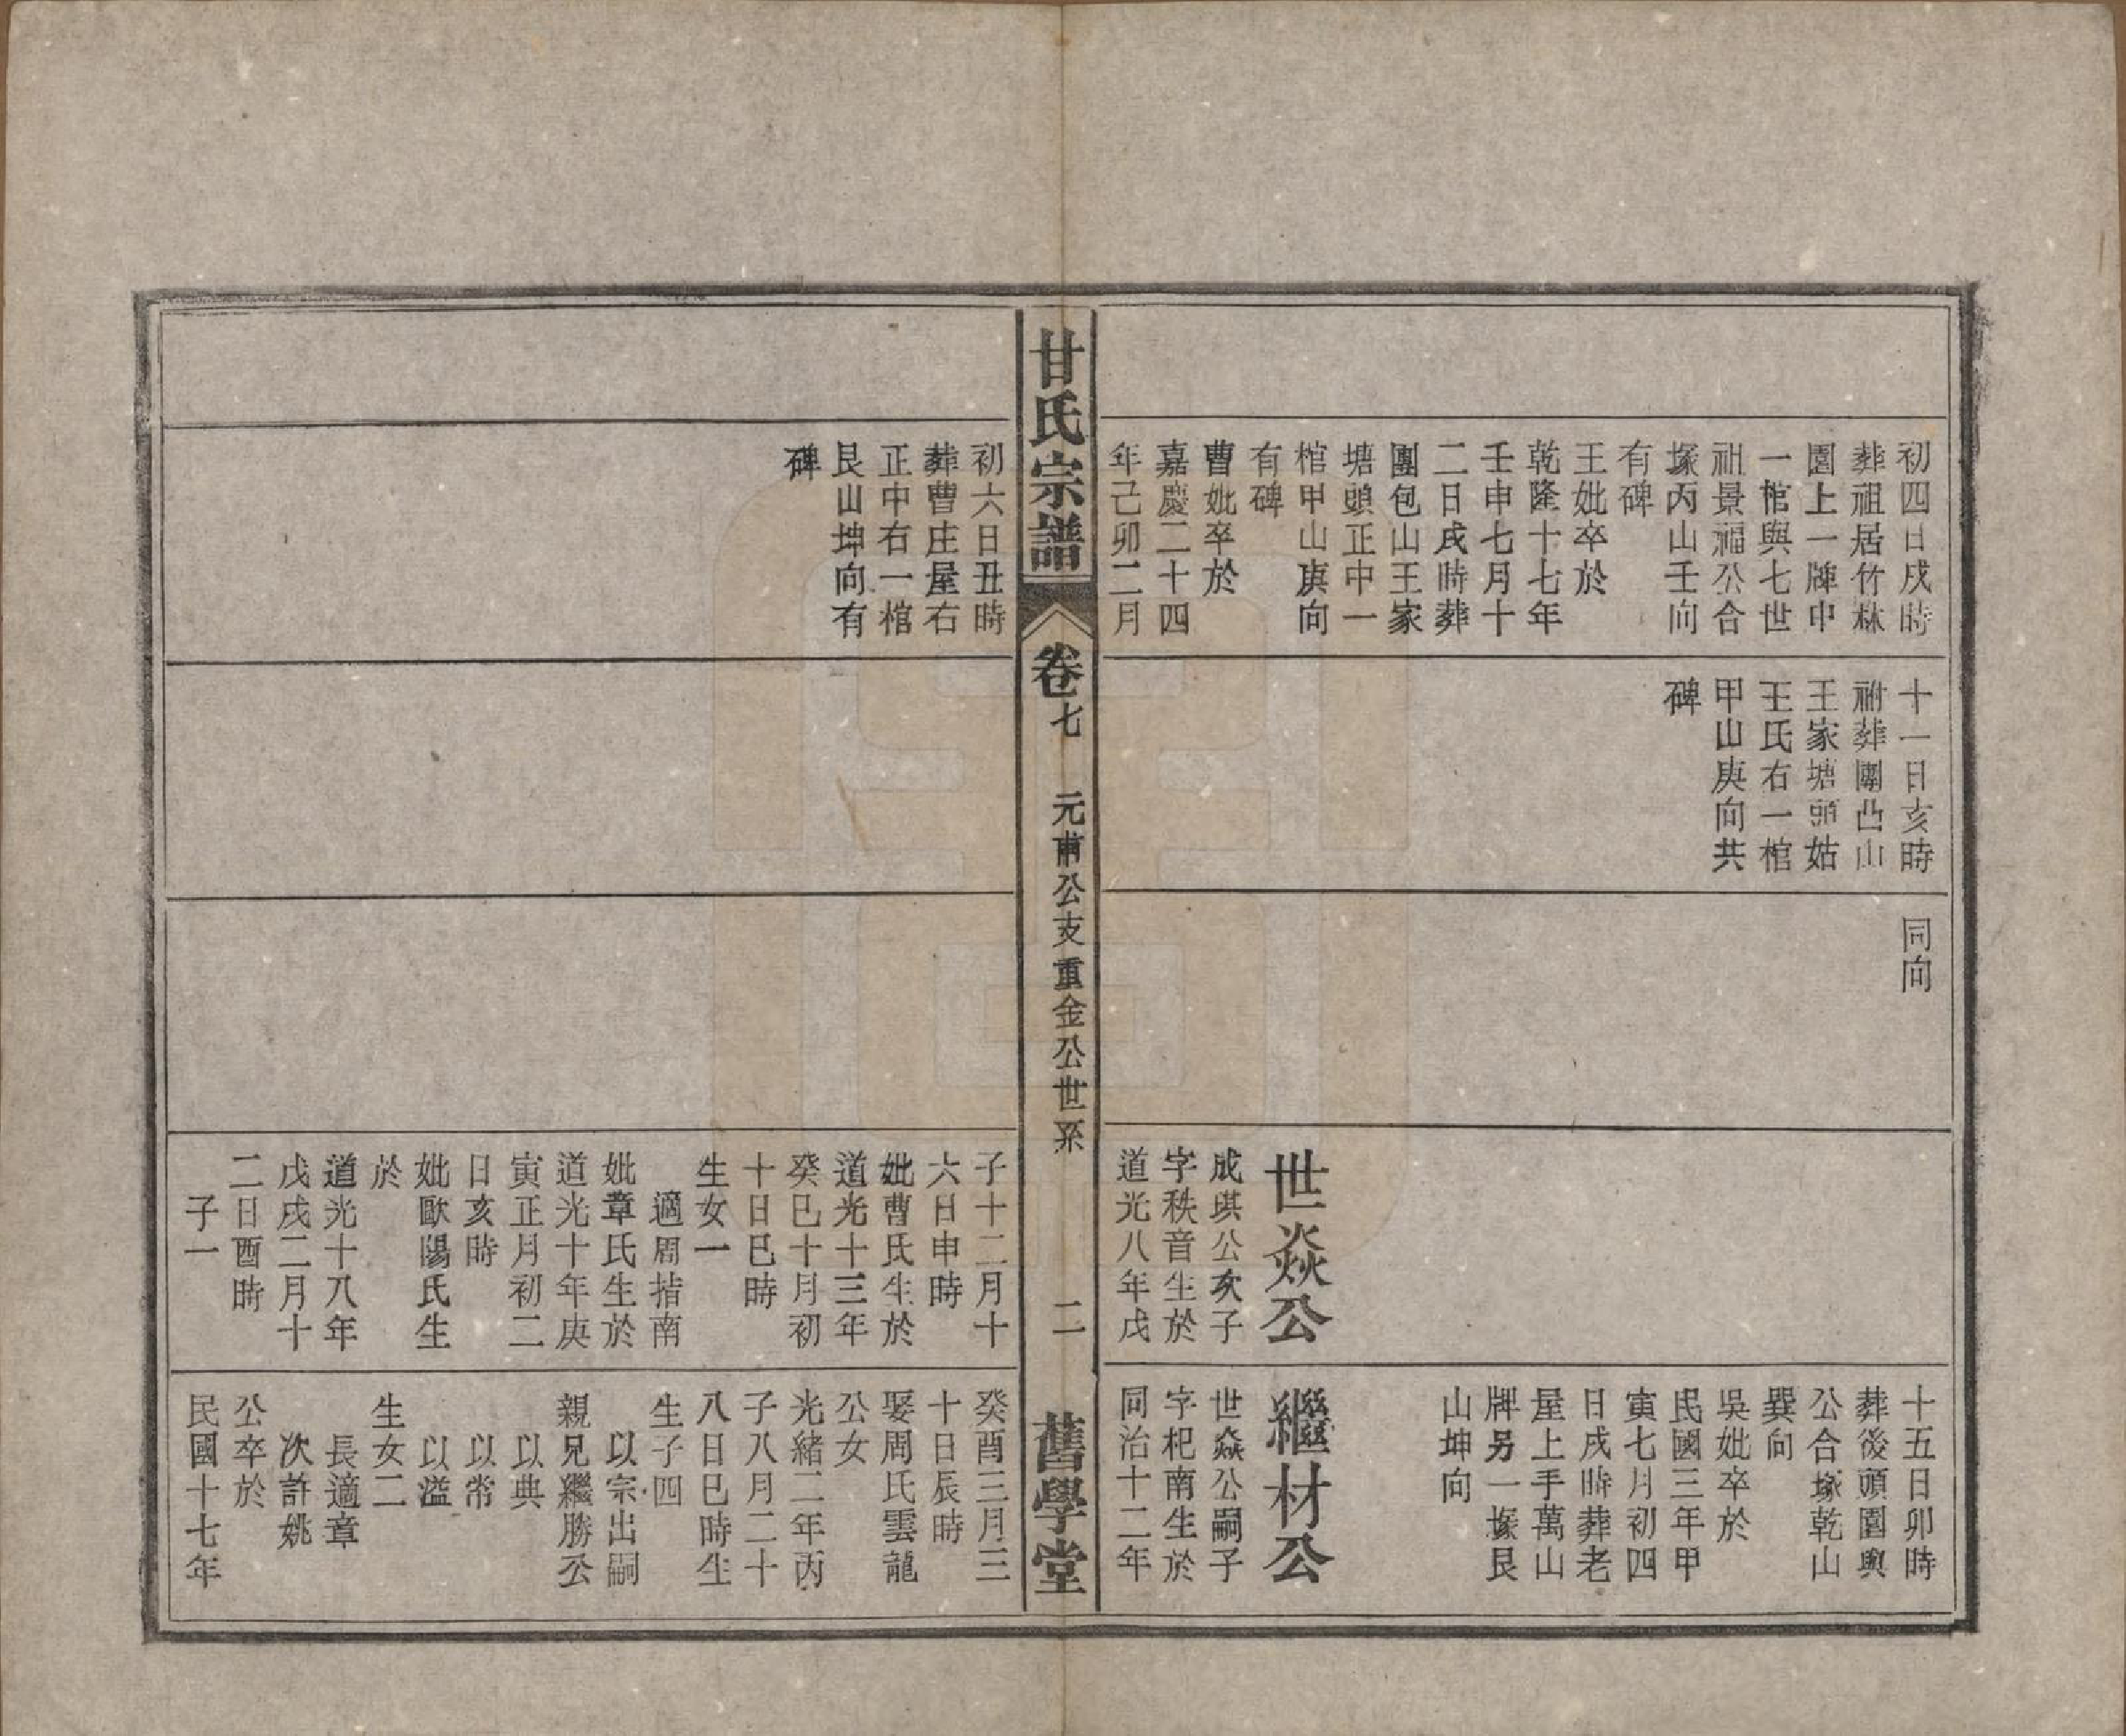 初四日戌時
葬祖居竹林
園上一牌中
一棺與七世
祖景福公合
塚丙山壬向
有碑
王妣卒於
乾隆十七年
壬申七月十
二日戌時葬
團包山王家
塘頭正中一
棺甲山庚向
有碑
曹妣卒於
嘉慶二十四
年己卯二月
十一日亥時
祔葬團凸山
王家塘頭姑
王氏右一棺
甲山庚向共
碑
同向
世焱公
成琪公次子
字秩音生於
道光八年戊
十五日卯時
葬後頭園與
公合塚乾山
巽向
吳妣卒於
民國三年甲
寅七月初四
日戌時葬老
屋上手萬山
牌另一塚艮
山坤向
繼材公
世焱公嗣子
字杞南生於
同治十二年
甘氏宗譜
卷七
元甫公支重金公世系
二
舊學堂
初六日丑時
葬曹庄屋右
正中右一棺
艮山坤向有
碑
子十二月十
六日申時
妣曹氏生於
道光十三年
癸巳十月初
十日巳時
生女一
適周揩南
妣章氏生於
道光十年庚
寅正月初二
日亥時
妣歐陽氏生
於
道光十八年
戊戌二月十
二日酉時
子一
癸酉三月三
十日辰時
娶周氏雲龍
公女
光緒二年丙
子八月二十
八日巳時生
生子四
以宗出嗣
親兄繼勝公
以典
以常
以溢
生女二
長適章
次許姚
公卒於
民國十七年